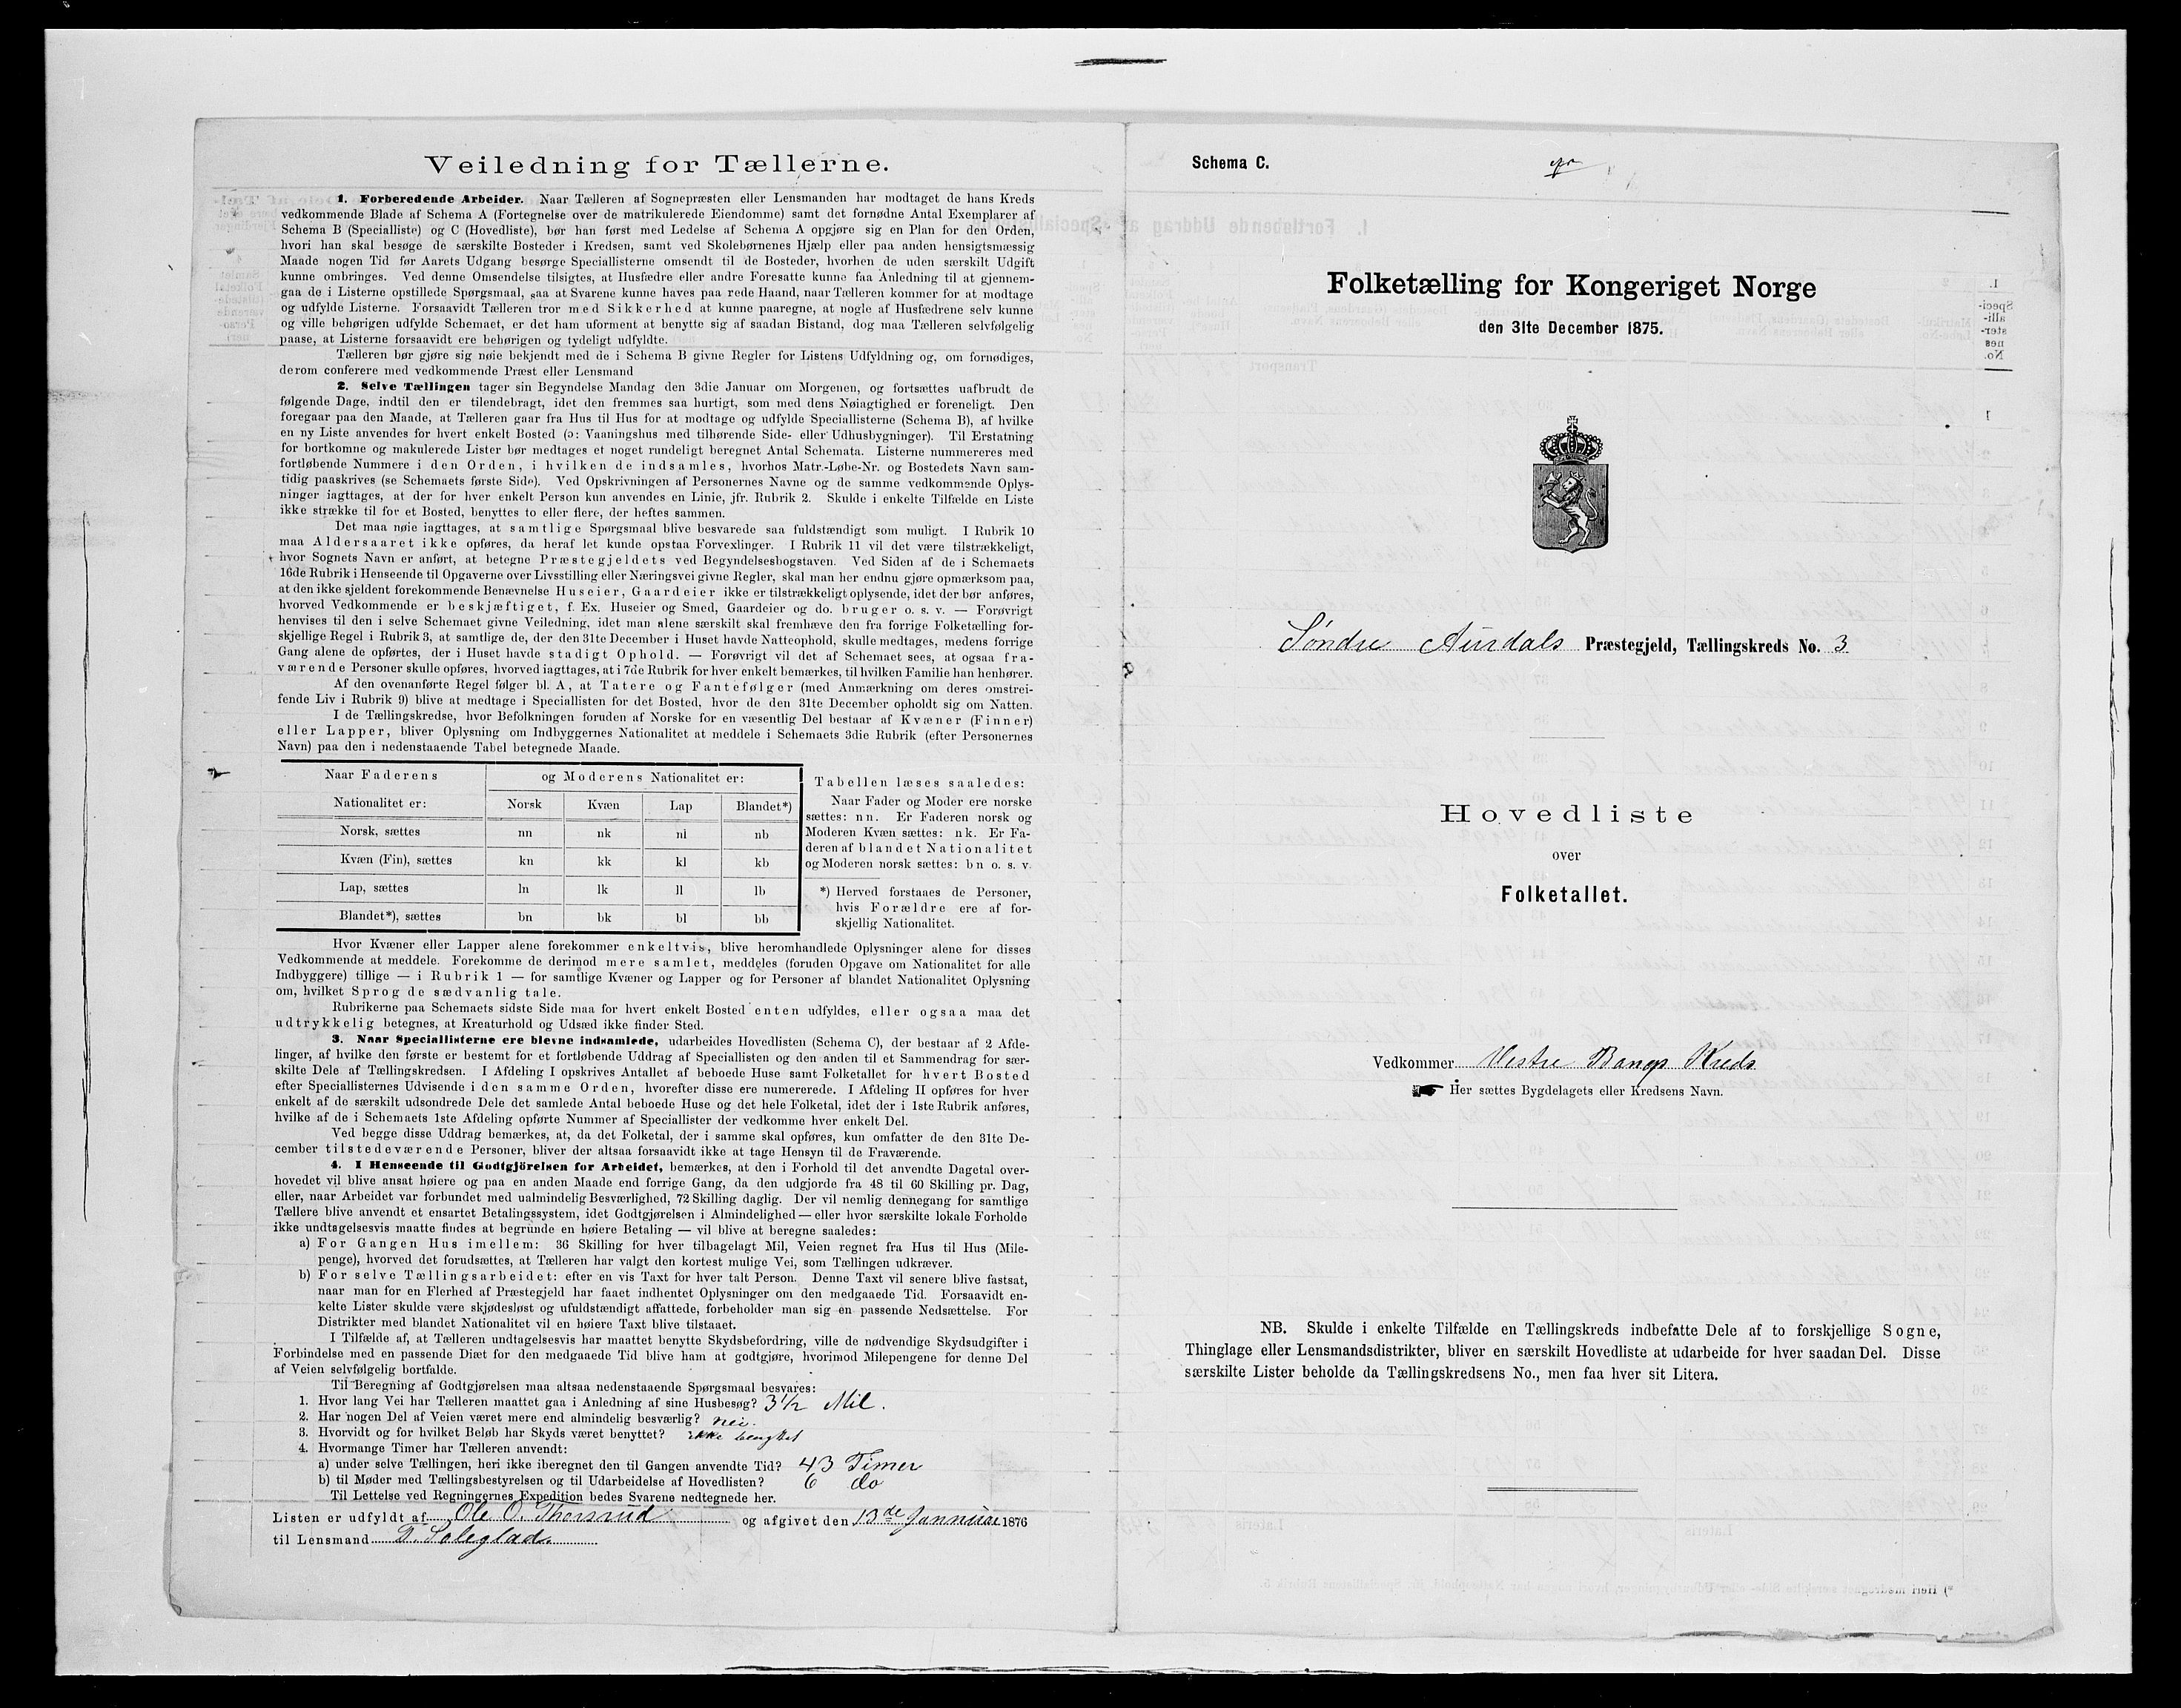 Veiledning for Tællerne.
1. Forberedende Arbeider. Naar Tælleren af Sognepræsten eller Lensmanden har modtaget de hans Kreds
vedkommende Blade af Schema A (Fortegnelse over de matrikulerede Eiendomme) samt det fornødne Antal Exemplarer af
Schema B (Specialliste) og C (Hovedliste), bør han først med Ledelse af Schema A opgjøre sig en Plan for den Orden,
hvori han skal besøge de særskilte Bosteder i Kredsen, samt ved Skolebørnenes Hjælp eller paa anden hensigtsmæssig
Maade nogen Tid før Aarets Udgang besørge Speciallisterne omsendt til de Bosteder, hvorhen de uden særskilt Udgift
kunne ombringes. Ved denne Omsendelse tilsigtes, at Husfædre eller andre Foresatte kunne faa Anledning til at gjennem-
gaa de i Listerne opstillede Spørgsmaal, saa at Svarene kunne haves paa rede Haand, naar Tælleren kommer for at modtage
og udfylde Listerne. Forsaavidt Tælleren tror med Sikkerhed at kunne paaregne, at nogle af Husfædrene selv kunne
og ville behørigen udfylde Schemaet, er det ham uforment at benytte sig af saadan Bistand, dog maa Tælleren selvfølgelig
paase, at Listerne forsaavidt ere behørigen og tydeligt udfyldte.
Tælleren bør gjøre sig nøie bekjendt med de i Schema B givne Regler for Listens Udfyldning og, om fornødiges,
derom conferere med vedkommende Præst eller Lensmand
2. Selve Tællingen tager sin Begyndelse Mandag den 3die Januar om Morgenen, og fortsættes uafbrudt de
følgende Dage, indtil den er tilendebragt, idet den fremmes saa hurtigt, som med dens Nøiagtighed er foreneligt. Den
foregaar paa den Maade, at Tælleren gaar fra Hus til Hus for at modtage og udfylde Speciallisterne (Schema B), af hvilke
en ny Liste anvendes for hvert enkelt Bosted (ɔ: Vaaningshus med tilhørende Side- eller Udhusbygninger). Til Erstatning
for bortkomne og makulerede Lister bør medtages et noget rundeligt beregnet Antal Schemata. Listerne nummereres med
fortløbende Nummere i den Orden, i hvilken de indsamles, hvorhos Matr.-Løbe-Nr. og Bostedets Navn sam-
tidig paaskrives (se Schemaets første Side). Ved Opskrivningen af Personernes Navne og de samme vedkommende Oplys-
ninger iagttages, at der for hver enkelt Person kun anvendes en Linie, jfr. Rubrik 2. Skulde i enkelte Tilfælde en Liste
ikke strække til for et Bosted, benyttes to eller flere, der heftes sammen.
Det maa nøie iagttages, at samtlige Spørgsmaal blive besvarede saa fuldstændigt som muligt. I Rubrik 10
maa Aldersaaret ikke opføres, da heraf let kunde opstaa Forvexlinger. I Rubrik 11 vil det være tilstrækkeligt,
hvor Sognets Navn er anført, at betegne Præstegjeldets ved Begyndelsesbogstaven. Ved Siden af de i Schemaets
16de Rubrik i Henseende til Opgaverne over Livsstilling eller Næringsvei givne Regler, skal man her endnu gjøre opmærksom paa,
at den ikke sjeldent forekommende Benævnelse Huseier, Gaardeier ikke er tilstrækkeligt oplysende, idet der bør anføres,
hvorved Vedkommende er beskjæftiget, f. Ex. Huseier og Smed, Gaardeier og do. bruger o. s. v. — Forøvrigt
henvises til den i selve Schemaet givne Veiledning, idet man alene særskilt skal fremhæve den fra forrige Folketælling for-
skjellige Regel i Rubrik 3, at samtlige de, der den 31te December i Huset havde Natteophold, skulle medtages, medens forrige
Gang alene de opførtes, der i Huset havde stadigt Ophold. — Forøvrigt vil det af Schemaet sees, at ogsaa fra-
værende Personer skulle opføres, hvorved iagttages, at i 7de Rubrik for hver enkelt bemærkes, til hvilken Familie han henhører.
Af den ovenanførte Regel følger bl. A, at Tatere og Fantefølger (med Anmærkning om deres omstrei-
fende Liv i Rubrik 9) blive at medtage i Speciallisten for det Bosted, hvor de den 31te December opholdt sig om Natten.
I de Tællingskredse, hvor Befolkningen foruden af Norske for en væsentlig Del bestaar af Kvæner (Finner)
eller Lapper, bliver Oplysning om Indbyggernes Nationalitet at meddele i Schemaets 3die Rubrik (efter Personernes
Navn) paa den i nedenstaaende Tabel betegnede Maade.
Naar Faderens Nationalitet er: og Moderens Nationalitet er:
Norsk Kvæn Lap Blandet*)
Norsk, sættes nn nk nl nb
Kvæn (Fin), sættes kn kk kl kb
Lap, sættes ln lk ll lb
Blandet*), sættes bn bk bl bb
Tabellen læses saaledes:
Naar Fader og Moder ere norske
sættes: nn. Er Faderen norsk og
Moderen Kvæn sættes: nk. Er Fa-
deren af blandet Nationalitet
og Moderen norsk sættes: bn o. s. v.
*) Herved forstaaes de Personer,
hvis Forældre ere af for-
skjellig Nationalitet.
Hvor Kvæner eller Lapper alene forekommer enkeltvis, blive heromhandlede Oplysninger alene for disses
Vedkommende at meddele. Forekomme de derimod mere samlet, meddeles (foruden Opgave om Nationalitet for alle
Indbyggere) tillige — i Rubrik 1 — for samtlige Kvæner og Lapper og for Personer af blandet Nationalitet Oplysning
om, hvilket Sprog de sædvanlig tale.
Rubrikerne paa Schemaets sidste Side maa for hvert enkelt Bosted enten udfyldes, eller ogsaa maa det
udtrykkelig betegnes, at Kreaturhold og Udsæd ikke finder Sted.
3. Naar Speciallisterne ere blevne indsamlede, udarbeides Hovedlisten (Schema C), der bestaar af 2 Afde-
linger, af hvilke den første er bestemt for et fortløbende Uddrag af Speciallisten og den anden til et Sammendrag for sær-
skilte Dele af Tællingskredsen. I Afdeling I opskrives Antallet af beboede Huse samt Folketallet for hvert Bosted
efter Speciallisternes Udvisende i den samme Orden, hvorefter disse ere numererede. I Afdeling II opføres for hver
enkelt af de særskilt udsondrede Dele det samlede Antal beboede Huse og det hele Folketal, idet der i 1ste Rubrik anføres,
hvilke af de i Schemaets 1ste Afdeling opførte Nummer af Speciallister der vedkomme hver enkelt Del.
Ved begge disse Uddrag bemærkes, at, da det Folketal, der i samme skal opføres, kun omfatter de den 31te De-
cember tilstedeværende Personer, bliver der altsaa forsaavidt ikke at tage Hensyn til de Fraværende.
4. I Henseende til Godtgjörelsen for Arbeidet, bemærkes, at den i Forhold til det anvendte Dagetal over-
hovedet vil blive ansat høiere og paa en anden Maade end forrige Gang, da den udgjorde fra 48 til 60 Skilling pr. Dag,
eller, naar Arbeidet var forbundet med ualmindelig Besværlighed, 72 Skilling daglig. Der vil nemlig dennegang for samtlige
Tællere blive anvendt et ensartet Betalingssystem, idet Godtgjørelsen i Almindelighed — eller hvor særskilte lokale Forholde
ikke undtagelsesvis maatte findes at begrunde en høiere Betaling — vil blive at beregne saaledes:
a) For Gangen Hus imellem: 36 Skilling for hver tilbagelagt Mil, Veien regnet fra Hus til Hus (Mile-
penge), hvorved det forudsættes, at Tælleren har valgt den kortest mulige Vei, som Tællingen udkræver.
b) For selve Tællingsarbeidet: efter en vis Taxt for hver talt Person. Denne Taxt vil senere blive fastsat,
naar man for en Flerhed af Præstegjeld har faaet indhentet Oplysninger om den medgaaede Tid. Forsaavidt en-
kelte Lister skulde være skjødesløst og ufuldstændigt affattede, forbeholder man sig en passende Nedsættelse. For
Distrikter med blandet Nationalitet vil en høiere Taxt blive tilstaaet.
I Tilfælde af, at Tælleren undtagelsesvis har maattet benytte Skydsbefordring, ville de nødvendige Skydsudgifter i
Forbindelse med en passende Diæt for den medgaaede Tid blive ham at godtgjøre, hvorimod Milepengene for denne Del
af Veien selvfølgelig bortfalde.
Til Beregning af Godtgjørelsen maa altsaa nedenstaaende Spørgsmaal besvares:
1. Hvor lang Vei har Tælleren maattet gaa i Anledning af sine Husbesøg? 3½ Mil.
2. Har nogen Del af Veien været mere end almindelig besværlig? nei.
3. Hvorvidt og for hvilket Beløb har Skyds været benyttet? ikke
4. Hvormange Timer har Tælleren anvendt:
a) under selve Tællingen, heri ikke iberegnet den til Gangen anvendte Tid? 43 Timer
b) til Møder med Tællingsbestyrelsen og til Udarbeidelse af Hovedlisten? 6 do
Til Lettelse ved Regningernes Expedition bedes Svarene nedtegnede her.
Listen er udfyldt af Ole O. Thorsrud og afgivet den 13de Januar 1876
til Lensmand T. Soleglad.
Schema C.
Folketælling for Kongeriget Norge
den 31te December 1875.
Søndre Aurdals Præstegjeld, Tællingskreds No. 3
Hovedliste
over
Folketallet.
Vedkommer Vestre Bangs Kreds
Her sættes Bygdelagets eller Kredsens Navn.
NB. Skulde i enkelte Tilfælde en Tællingskreds indbefatte Dele af to forskjellige Sogne,
Thinglage eller Lensmandsdistrikter, bliver en særskilt Hovedliste at udarbeide for hver saadan Del. Disse
særskilte Lister beholde da Tællingskredsens No., men faa hver sit Litera.